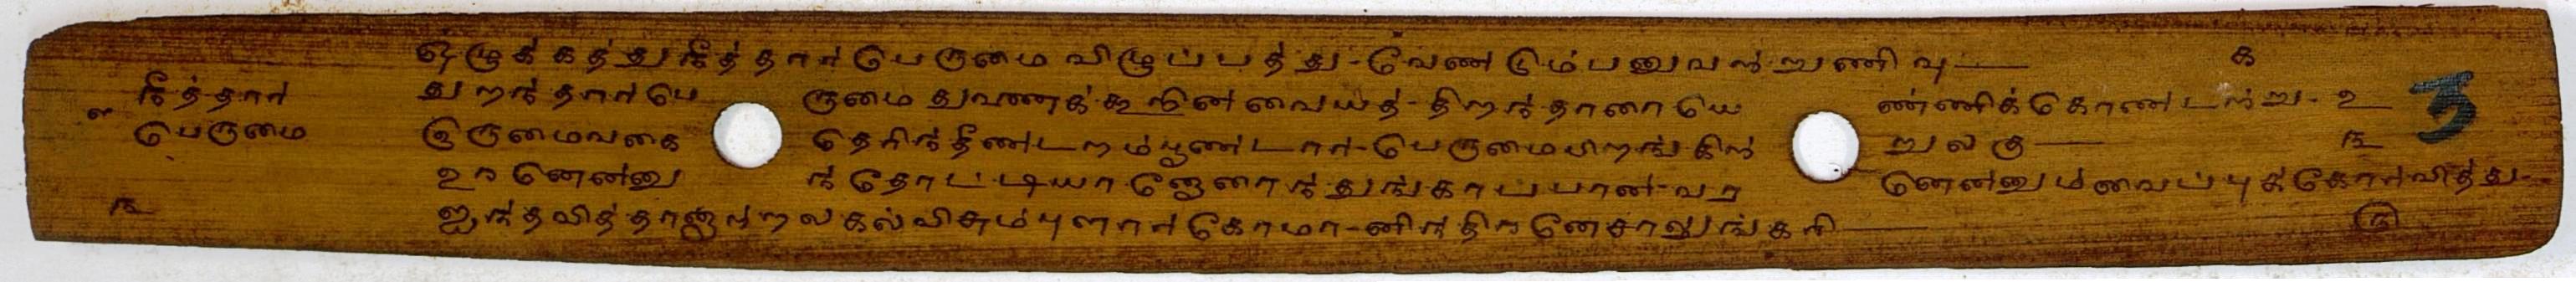 ஒழுக்கத்துநீத்தார்பெருமைவிழுப்பத்து-வெண்டும்பனுவற்றுணிவு— ௧
நீத்தார் துறந்தார்பெ ருமைதுணைக்கூறின்வையத்-திறந்தாரையெ ண்ணிக்கொண்டற்று- ௨ 3
பெருமை இருமைவகை தெரிந்தீண்டறம்பூண்டார்-பெருமைபிறங்கிற் றுலகு— ௩
உரனென்னு ந்தொட்டியானோரைந்துங்காப்பான்-வர னென்னும்வைப்புக்கொர்வித்து-
௩ ஐந்தவித்தானாற்றலகல்விசும்புளார்கொமா-னிந்திரனெசாலுங்கரி— ௫